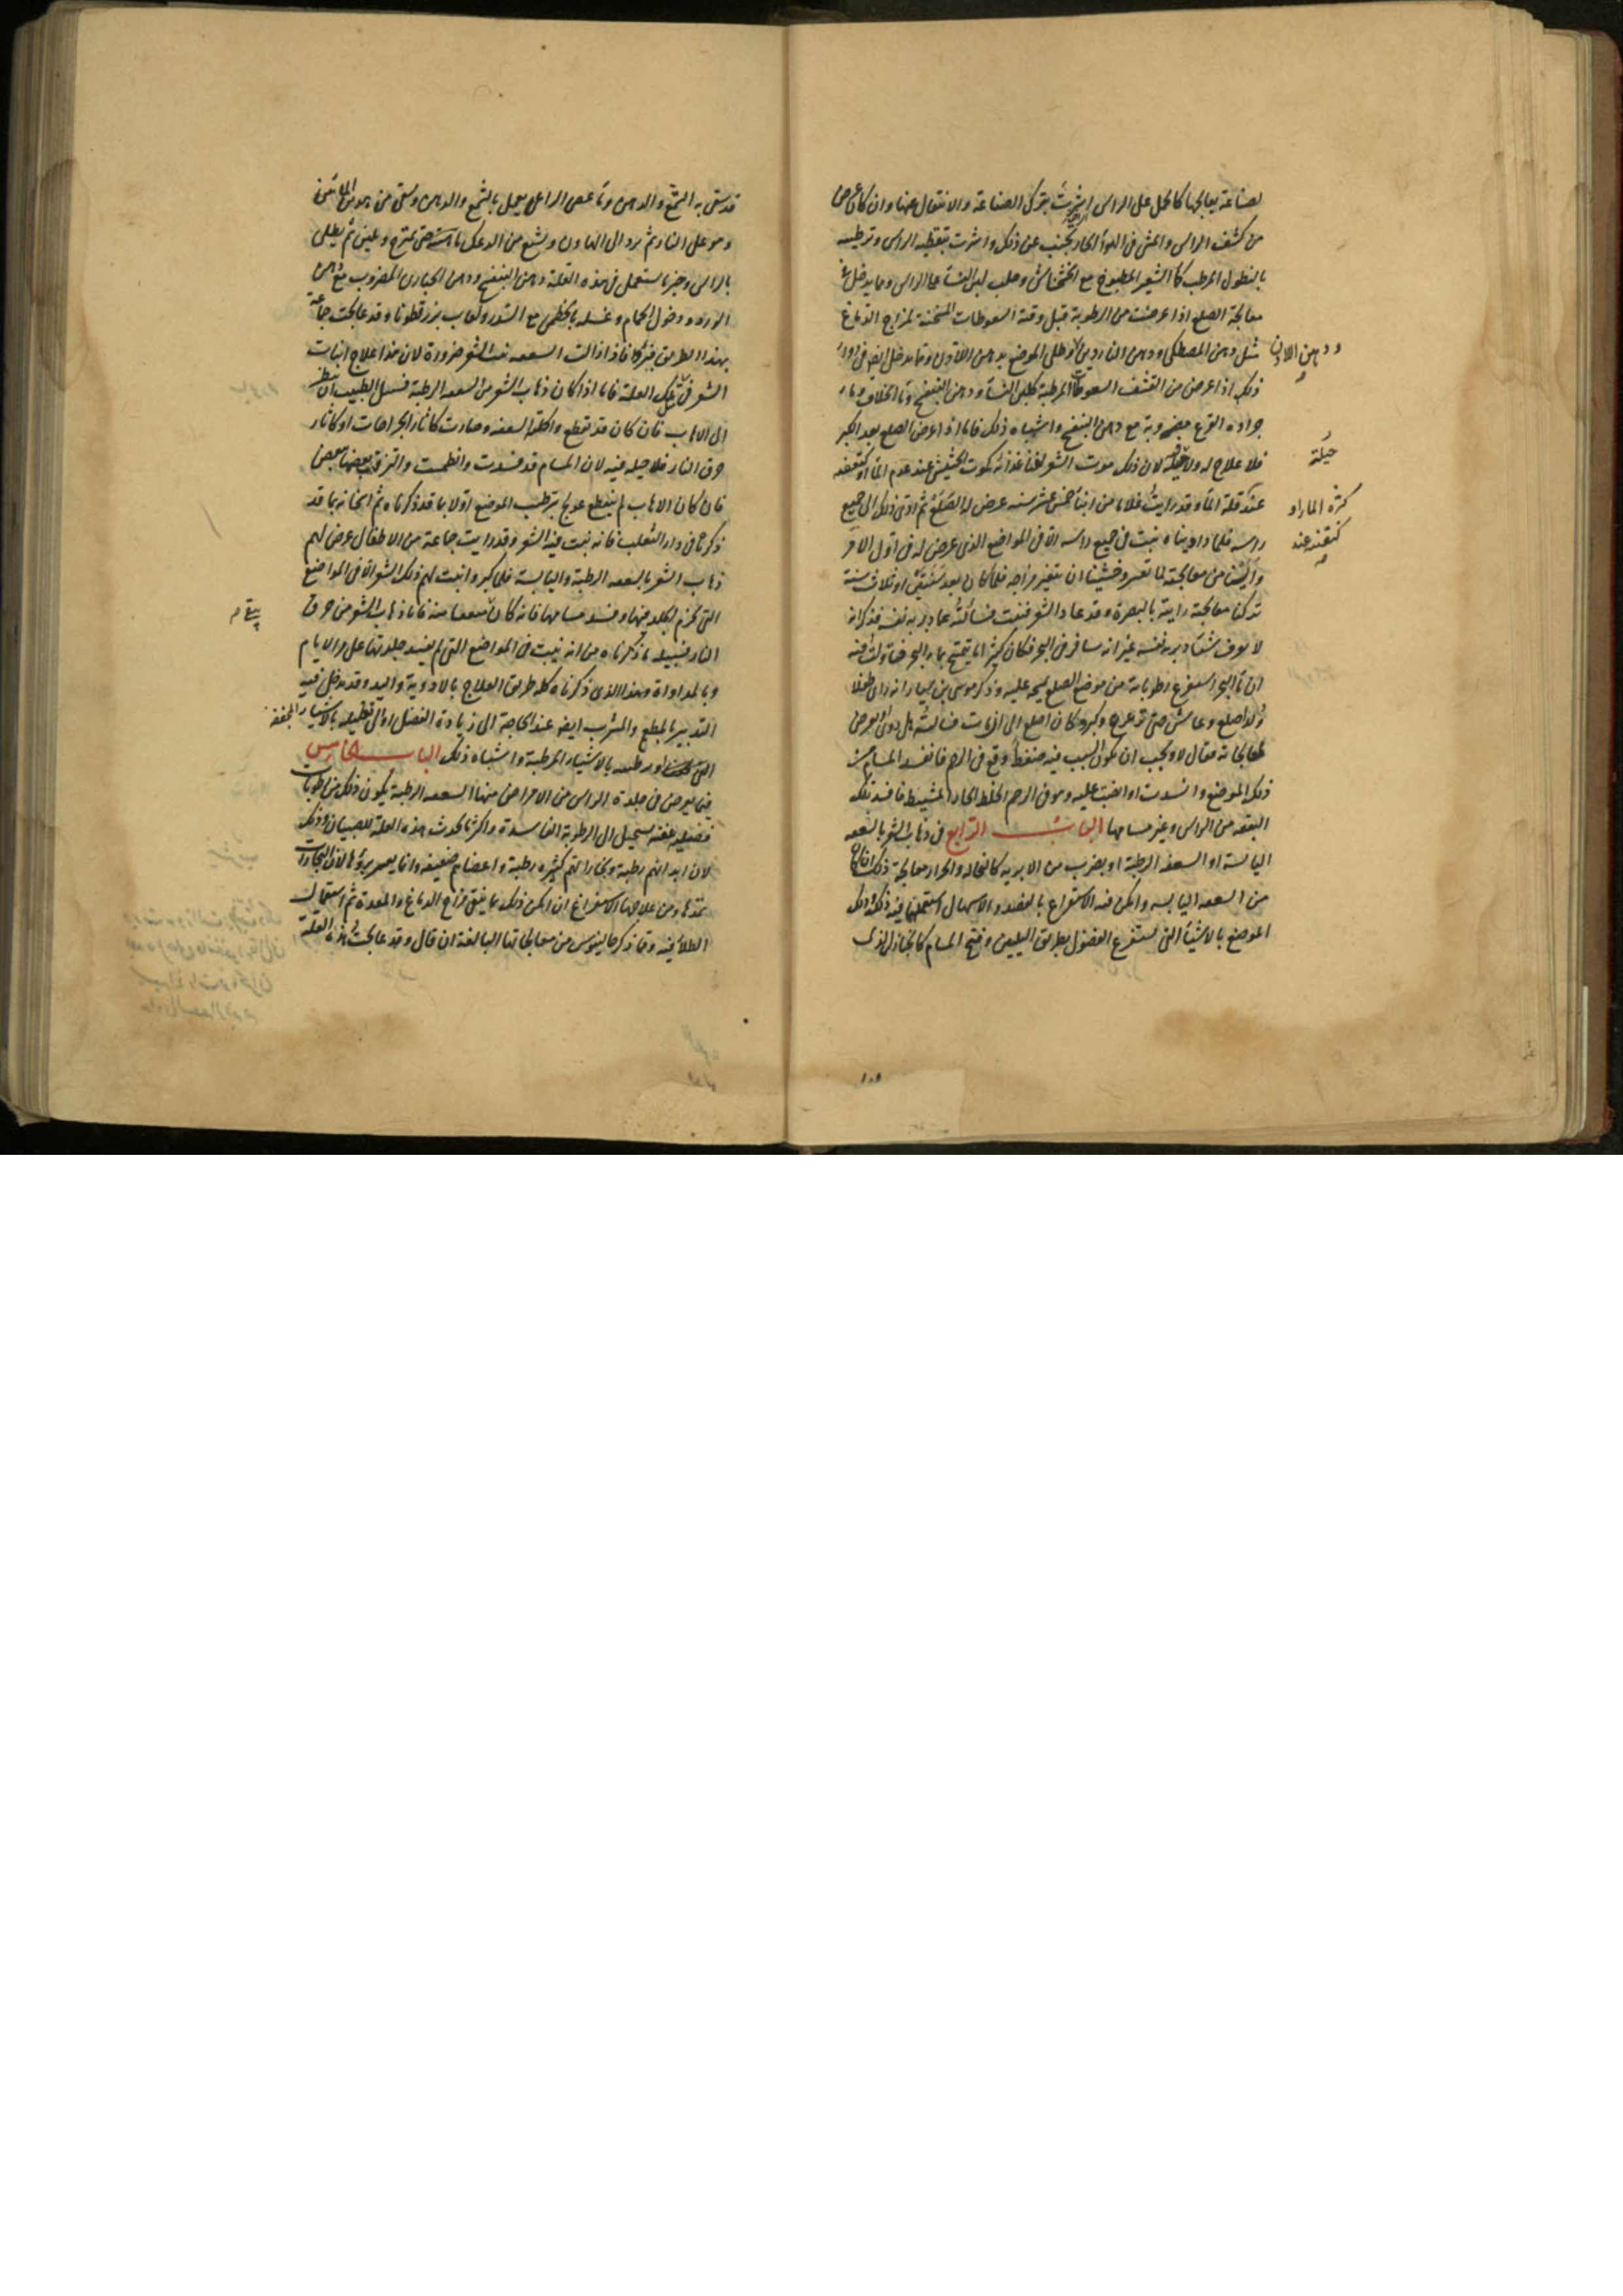 لصناعة يعالجها كالحمل على الراس اشرت بترك الصناعة والانتقال عنها وان كان عرض
من كشف الراس والمشي في الهواء الحار يجنب عن ذلك واشرت بتغطية الراس وترطيبه
بالنطول المرطب كماء الشعير المطبوخ مع الخشخاش وحلب لبن النساء على الراس ومما يدخل في
معالجة الصلع اذا عرضت من الرطوبة قبل وقته السعوطات المسخنة لمزاج الدماغ
مثل دهن المصطكى ودهن الناردين وطلي الموضع بدهن اللادن ومما يدخل ايضا في دواء
ودهن اللادن
ذلك اذا عرض من القشف السعوطات المرطبة كلبن النساء ودهن البنفسج وماء الخلاف وماء
جرادة القرع مضروبة مع دهن البنفسج واشباه ذلك فاما اذا عرض الصلع بعد الكبر
فلا علاج له ولا حيلة لان ذلك موت الشعر لفناء غذائه كموت الحشيش عند عدم الماء او كنقصه
حيلة
عند قلة الماء وقد رايت فلانا من ابناء خمس عشر سنه عرض له الصلع ثم ادى ذلك الى جميع
كثرة الماء او
راسه فلما داويناه نبت في جميع راسه الا في المواضع الذي عرض له في اول الامر
كنقصه عند
وايسنا من معالجته لما تعسر وخشينا ان يتغير مزاجه فلما كان بعد سنتين او ثلاث سنة
تركنا معالجته رايته بالبصرة وقد عاد الشعر فنبت فسالته عما دبر به نفسه فذكر انه
لا يعرف شيئا دبر به نفسه غير انه سافر في البحر فكان كثيرا ما يتمتح بماء البحر فتاولت فيه
ان ماء البحر استفرغ رطوباته من موضع الصلع يسيحه عليه وذكر موسى بن سيار انه راى طفلا
ولد اصلع وعاش حتى ترعرع وكبر وكان اصلع الى ان مات فسالته هل دواء يعرض
لمعالجاته فقال لا ويجب ان يكون السبب فيه ضغط وقع في الرحم فانفسد المسام من
ذلك الموضع وانسدت او انصب عليه وهو في الرحم الخلط الحار المشيط فافسد تلك
البقعه من الراس وغير مسامها الباب الرابع في ذهاب الشعر بالسعفه
اليابسة او السعفه الرطبة او بضرب من الابريه كالنخاله والحرار معالجة ذلك اذا كان
من السعفه اليابسه وامكن فيه الاستفراغ بالفصد والاسهال استعملنا فيه ذلك ودلك
الموضع بالاشياء التي تستفرغ الفضول بطريق التليين وفتح المسام كالخازل الذي
قد سقي به الشمع والدهن وماء عصى الراعي يعمل بالشمع والدهن وسقي من هذين المائين
وهو على النار ثم يرد الى الهاون ويشبع من الدعك حتى يمتزج ويلين ثم يطلى
بالراس وخير ما يستعمل في هذه العلة دهن البنفسج ودهن الخباري المضروب مع دهن
الورد ودخول الحمام وغسله بالخطمي مع السدر ولعاب بزر قطونا وقد عالجت جماعة
بهذا الطريق فبرؤا فاذا زالت السعفه نبت الشعر ضرورة لان هذا علاج انبات
الشعر في تلك العلة فاما اذا كان ذهاب الشعر من السعفه الرطبة فسبيل الطبيب ان ينظر
الى الاهاب فان كان قد تقطع واكلته السعفه وصارت كاثار الجراحات او كاثار
حرق النار فلا حيله فيه لان المسام قد فسدت وانطمست والتزقت بعضها ببعض
فان كان الاهاب لم ينقطع عولج بترطيب الموضع اولا بما قد ذكرناه ثم اسخانه بما قد
ذكر في داء الثعلب فانه نبت فيه الشعر وقد رايت جماعة من الاطفال عرض لهم
ذهاب الشعر بالسعفه الرطبة واليابسة فلما كبروا نبت لهم ذلك الشعر الا في المواضع
التي تخرم الجلد فيها وفسد مسامها فانه كان ضعفا منه فاما ذهاب الشعر من حرق
النار فسبيله ما ذكرناه من انه ينبت في المواضع التي لم يفسد جلدتها على مر الايام
وبالمداواة وهذا الذي ذكرناه كله طريق العلاج بالادوية واليد وقد يدخل فيه
التدبير بالمطعم والمشرب ايضا عند الحاجة الى زيادة الفضل او الى تقليله بالاشياء المجففه
او رطبه بالاشياء المرطبة واشباه ذلك الباب الخامس
فيما يعرض في جلدة الراس من الامراض منها السعفه الرطبة يكون ذلك من رطوبات
فضيله عفنه تستحيل الى الرطوبة الفاسدة واكثر ما يحدث هذه العلة للصبيان وذلك
لان ابدانهم رطبة وبخاراتهم كثيره رطبة واعضاءهم ضعيفه وانما يعسر برؤها لان البخارات
تمدها ومن علاجها الاستفراغ ان امكن ذلك بما ينقي مزاج الدماغ والمعدة ثم استعمال
الطلاء فيه وقد ذكر جالينوس من معالجاتها البالغة ان قال وقد عالجت هذه العلة